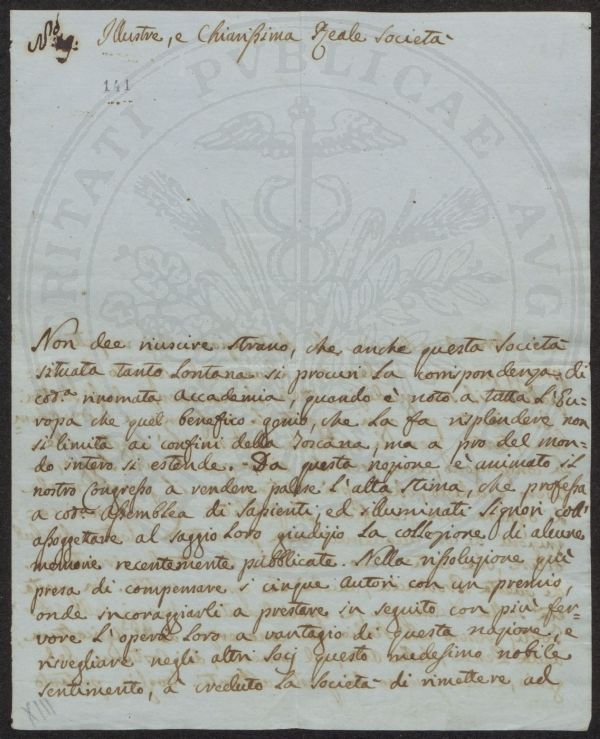 No. 9.
Illustre, e Chiarissima Reale Società
141
PROSPERITATI PUBLICAE AUG
Non dee riuscire strano, che anche questa Società
situata tanto Lontana si procuri La corrispondenza di
cod.ª rinomata Accademia, quando è noto a tutta L'Eu-
ropa che quel benefico genio, che La fa risplendere non
si limita ai confini della Toscana, ma a pro del mon-
do intero si estende. Da questa nozione è animato il
nostro Congresso a rendere palese L'alta stima, che professa
a cod.ª Assemblea di Sapienti, ed illuminati Signori coll'
assogettare al saggio Loro giudizio La collezione di alcune
memorie recentemente pubblicate. Nella rissoluzione già
presa di compensare i cinque Autori con un premio,
onde incoraggiarli a prestare in seguito con più fer-
vore L'opera Loro a vantaggio di questa nazione, e
risvegliare negli altri Socj questo medesimo nobile
sentimento, à creduto La Società di rimettere ad
XIII